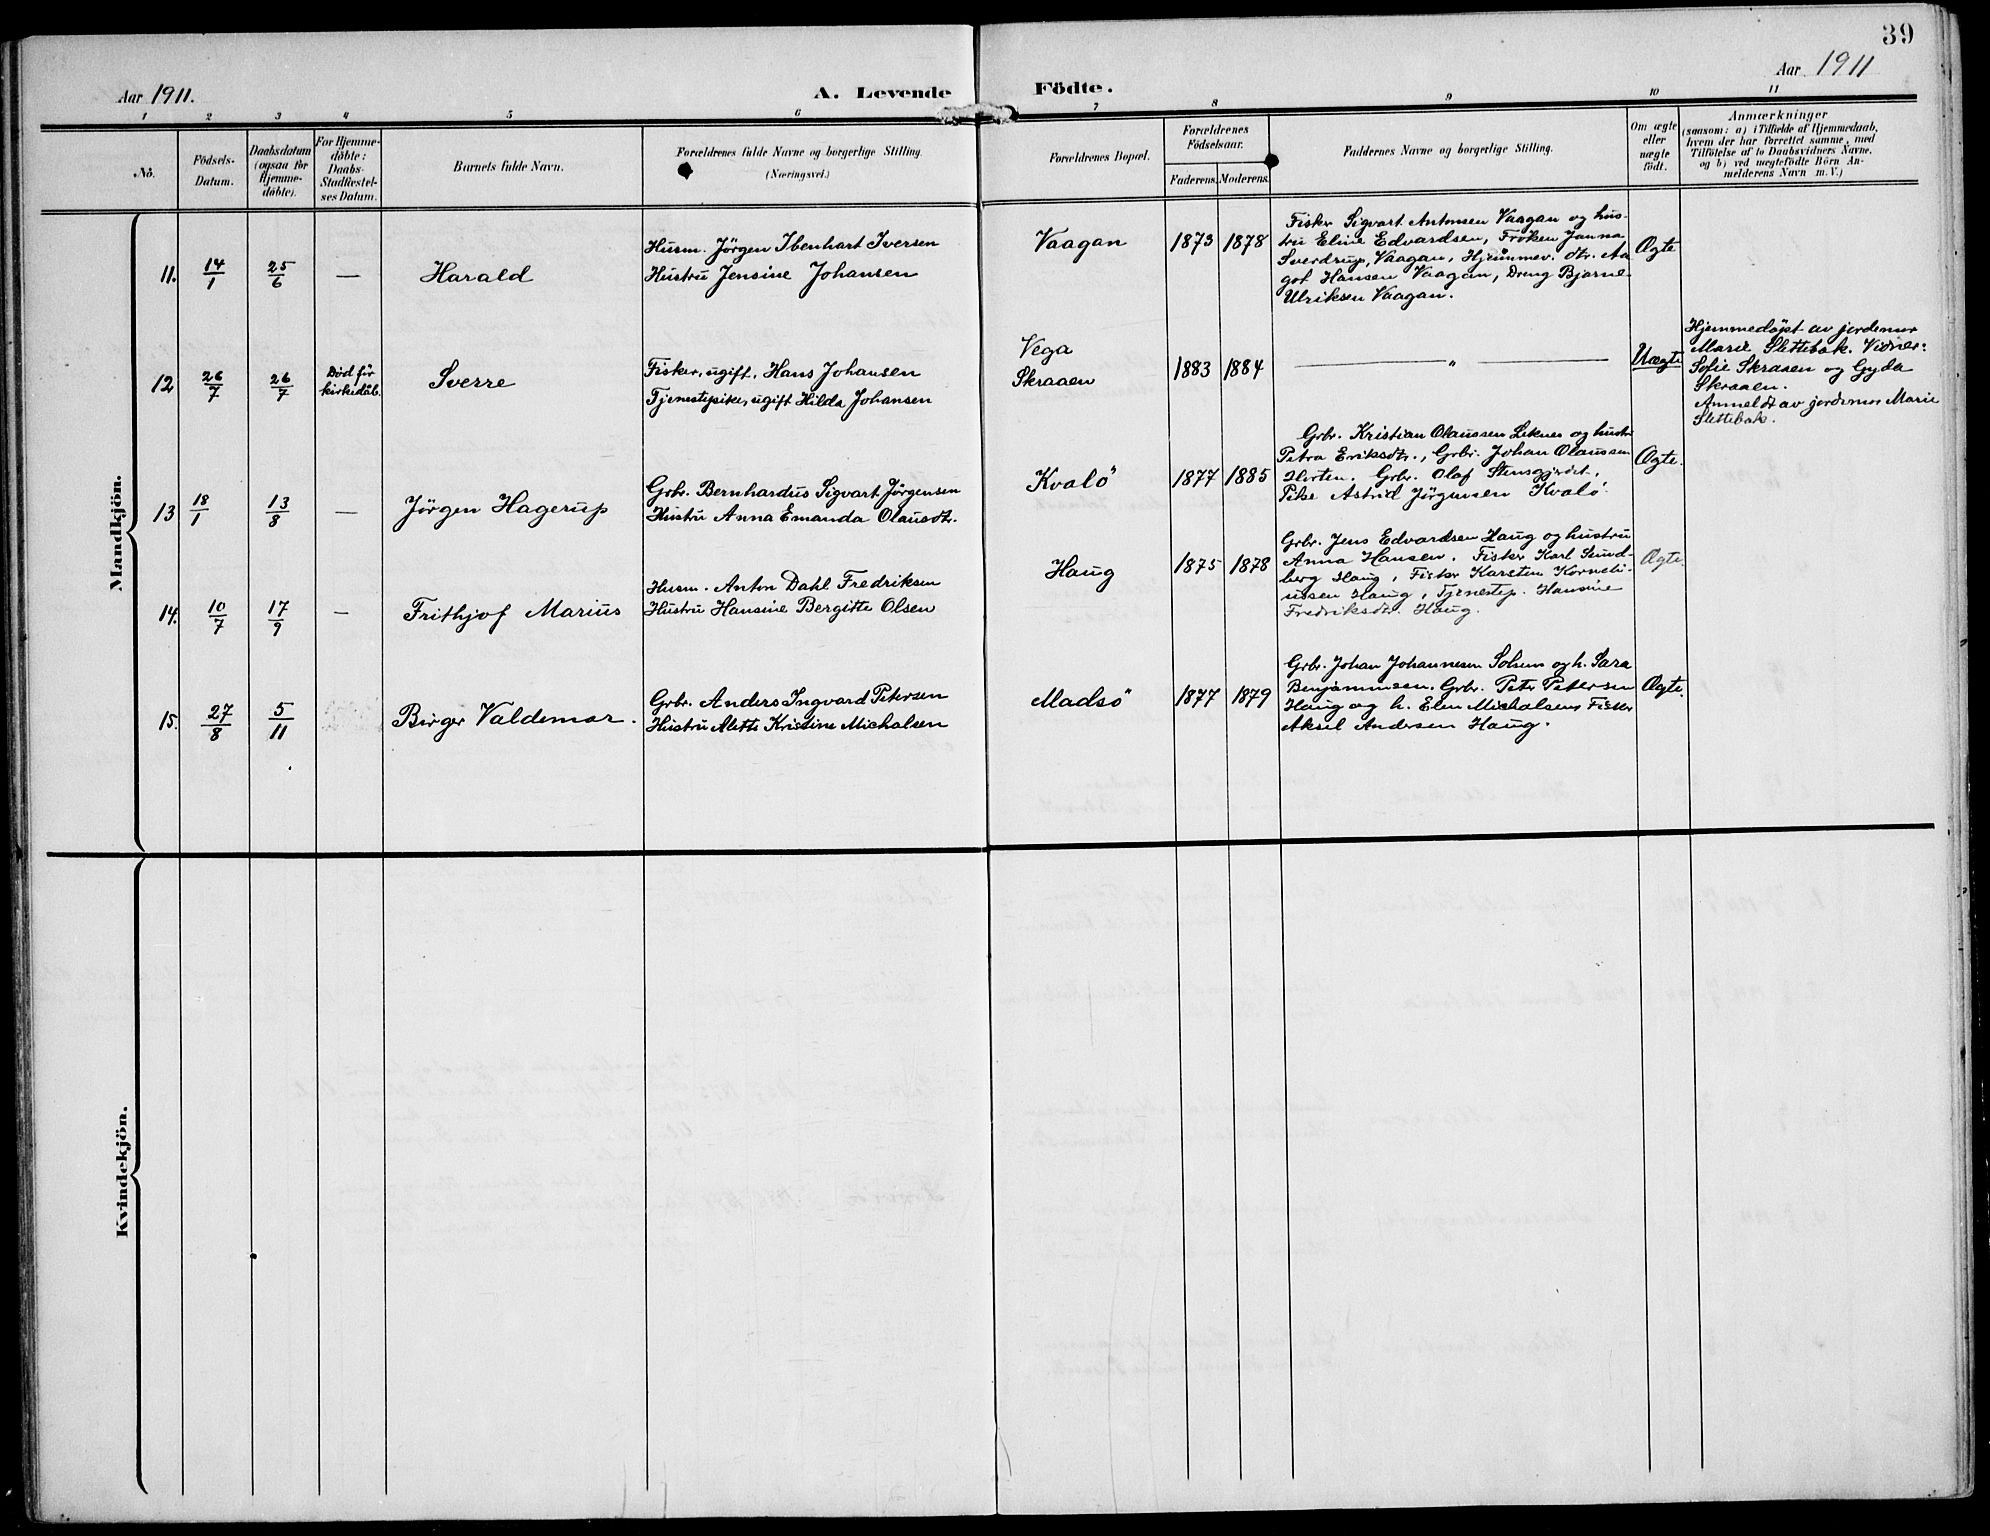 39
Aar 1911.
A. Levende
Födte.
Aar 1911
1
2
3
4
5
6
7
8
9
10
11
No.
Födsels-
Datum.
Daabsdatum
(ogsaa for
Hjemme-
döbte).
For Hjemme-
döbte:
Daabs-
Stadfæstel-
ses Datum.
Barnets fulde Navn.
Forældrenes fulde Navne og borgerlige Stilling.
(Næringsvei.)
Forældrenes Bopæl.
Forældrenes
Födselsaar.
Faderens.
Moderens.
Faddernes Navne og borgerlige Stilling.
Om ægte
eller
uægte
födt.
Anmærkninger
(saasom: a) i Tilfælde af Hjemmedaab,
hvem der har forrettet samme, med
Tilföielse af to Daabsvidners Navne,
og b) ved uegtefödte Börn An-
melderens Navn m. V.)
Mandkjön.
11.
14/1
25/6
—
Harald
Husm. Jörgen Ibenhart Iversen
Hustru Jensine Johansen
Vaagan
1873
1878
Fisker Sigvart Antonsen Vaagan og hus-
tru Eline Edvardsen, Fröken Janna
Sverdrup, Vaagan, Hjemmev. dtr. Aa
got Hansen Vaagan, Dreng Bjarne
Ulriksen Vaagan.
Ægte
12
26/7
26/7
Död för
kirkedåb.
Sverre
Fisker, ugift, Hans Johansen
Tjenestepike, ugift Hilda Johansen
Vega
Skraaen
1883
1884
— " —
Uægte
Hjemmedöpt av jordemor
Marie Slettebak. Vidner:
Sofie Skraaen og Gyda
Skraaen.
Anmeldt av jordemor Marie
Slettebak.
13
18/1
13/8
—
Jörgen Hagerup
Grbr. Bernhardus Sigvart Jörgensen
Hustru Anna Emanda Olausdtr.
Kvalö
1877
1885
Grbr. Kristian Olaussen Leknes og hustru
Petra Eriksdtr., Grbr. Johan Olaussen
Horten. Grbr. Olaf Stensgjerdet,
Pike Astrid Jörgensen Kvalö.
Ægte.
14.
10/7
17/9
—
Frithjof Marius
Husm. Anton Dahl Fredriksen
Hustru Hansine Bergitte Olsen
Haug
1875
1878
Grbr. Jens Edvardsen Haug og hustru
Anna Hansen. Fisker Karl Sund-
berg Haug, Fisker Karsten Korneli-
ussen Haug, Tjenestep. Hansine
Fredriksdtr. Haug.
Ægte.
15.
27/8
5/11
—
Birger Valdemar.
Grbr. Anders Ingvard Petersen
Hustru Alette Kristine Michalsen
Madsö
1877
1879
Grbr. Johan Johannesen Solsem og h. Sara
Benjaminsen. Grbr. Peter Petersen
Haug og h. Elen Michalsens Fisker
Aksel Andersen Haug.
Ægte.
Kvindekjön.